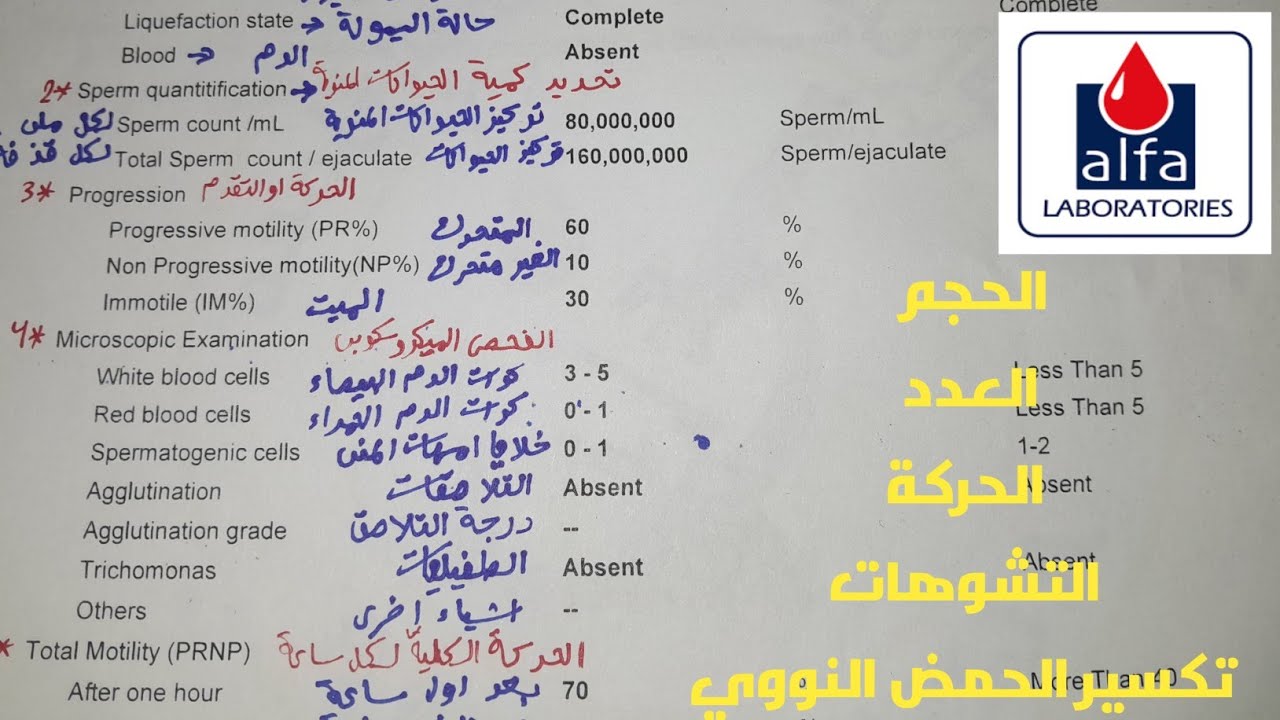 Complete
Liquefaction state → حالة السيولة Complete
Blood → الدم Absent
2* Sperm quantitification → تحديد كمية الحيوانات المنوية
Sperm count /mL تركيز الحيوانات المنوية لكل ملي 80,000,000 Sperm/mL
Total Sperm count / ejaculate تركيز الحيوانات لكل 160,000,000 Sperm/ejaculate
3* Progression الحركة او التقدم
Progressive motility (PR%) المتحرك 60 %
Non Progressive motility(NP%) الغير متحرك 10 %
Immotile (IM%) الميت 30 %
4* Microscopic Examination الفحص الميكروسكوبي
White blood cells كرات الدم البيضاء 3 - 5 Less Than 5
Red blood cells كرات الدم الحمراء 0 - 1 Less Than 5
Spermatogenic cells خلايا امهات المني 0 - 1 1-2
Agglutination التلاصقات Absent Absent
Agglutination grade درجة التلاصق --
Trichomonas الطفيليات Absent Absent
Others اشياء اخرى --
* Total Motility (PRNP) الحركة الكلية لكل ساعة
After one hour بعد اول ساعة 70 % More Than 40
alfa
LABORATORIES
الحجم
العدد
الحركة
التشوهات
تكسير الحمض النووي